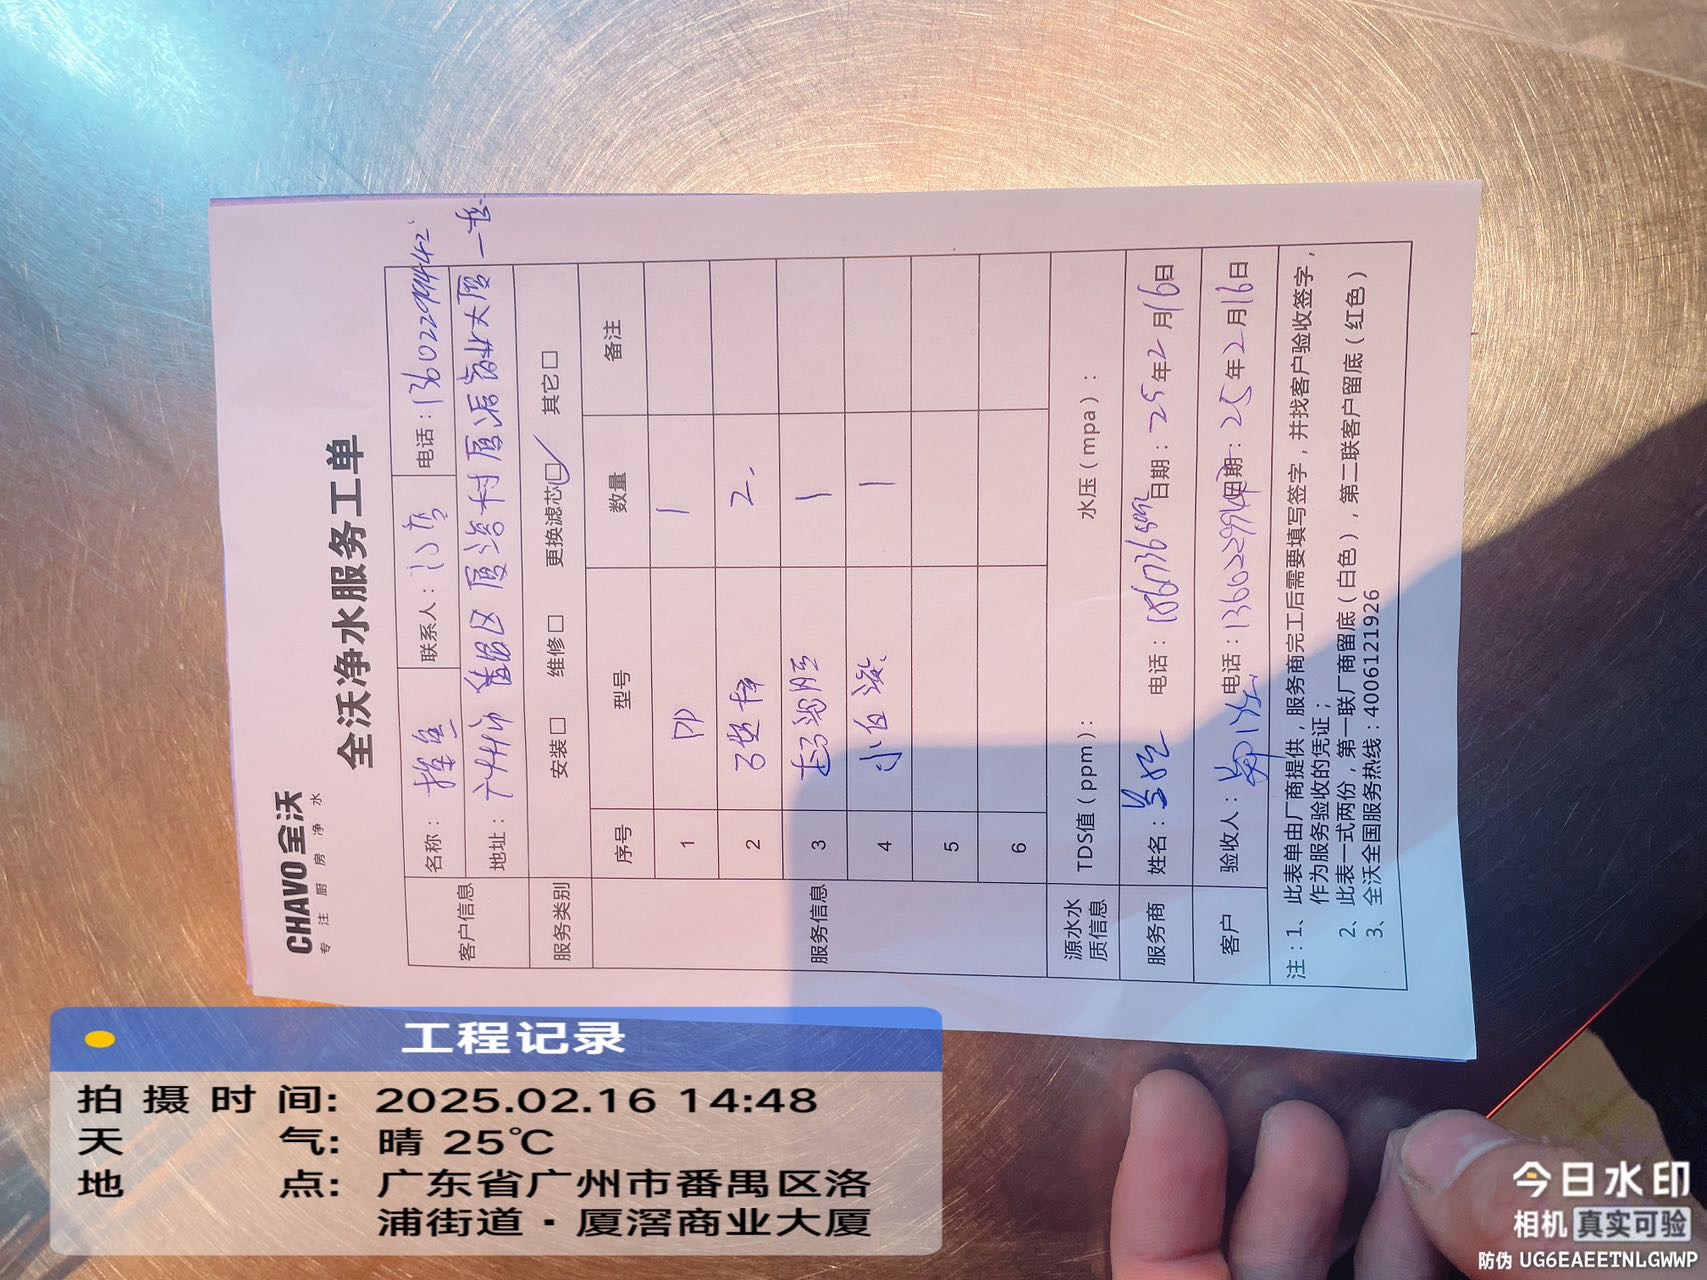 CHAVO全沃
专注厨房净水
全沃净水服务工单
客户信息 名称： 联系人： 电话：13602299442
地址：广州市番禺区厦滘村厦滘商业大厦一楼
服务类别 安装□ 维修□ 更换滤芯□✓ 其它□
服务信息 序号 型号 数量 备注
1 PP 1
2 2.
3 1
4 1
5
6
源水水质信息 TDS值（ppm）： 水压（mpa）：
服务商 姓名： 电话： 日期：25年2月16日
客户 验收人： 电话：13602299442 日期：25年2月16日
注：1、此表单由厂商提供，服务商完工后需要填写签字，并找客户验收签字，
作为服务验收的凭证；
2、此表一式两份，第一联厂商留底（白色），第二联客户留底（红色）
3、全沃全国服务热线：4006121926
工程记录
拍摄时间: 2025.02.16 14:48
天气: 晴 25℃
地点: 广东省广州市番禺区洛
浦街道·厦滘商业大厦
今日水印
相机 真实可验
防伪 UG6EAEETNLGWWP